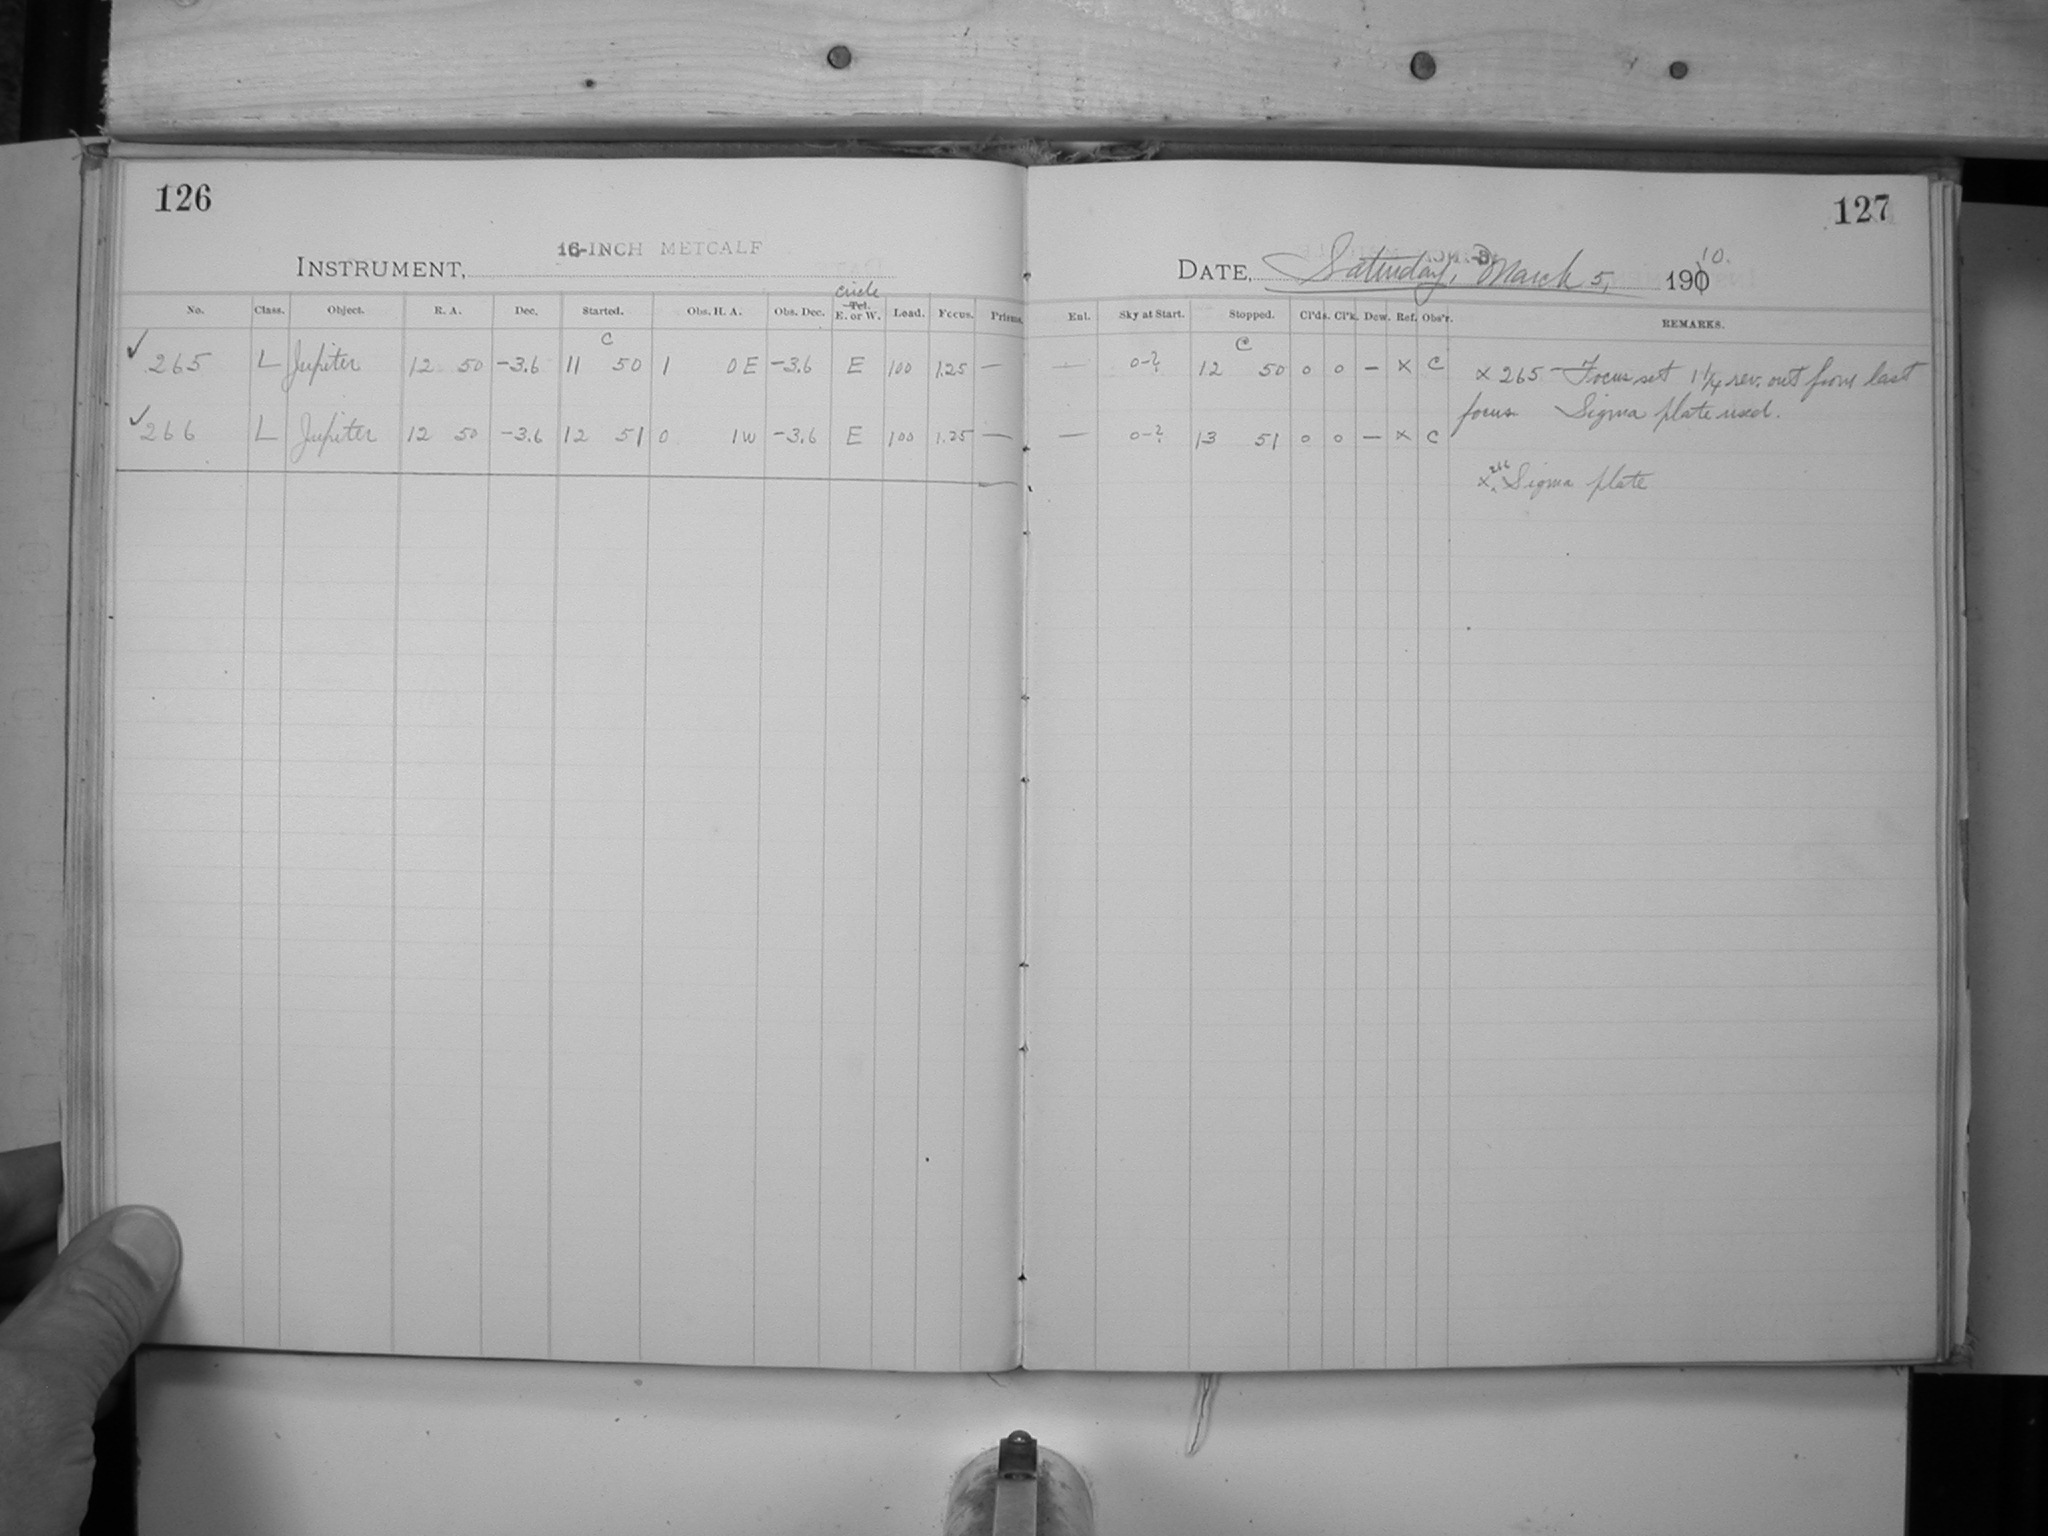 126
127
16-INCH METCALF
INSTRUMENT,
DATE, Saturday, March 5, 1910.
circle
No. Class. Object. R. A. Dec. Started. Obs. H. A. Obs. Dec. Tel. E. or W. Load. Focus. Prisms. Enl. Sky at Start. Stopped. Cl'ds. Cl'k. Dew. Ref. Obs'r. REMARKS.
C C
✓ 265 L Jupiter 12 50 -3.6 11 50 1 0 E -3.6 E 100 1.25 — — 0-? 12 50 0 0 — × C × 265 - Focus set 1 1/4 rev. out from last
focus. Sigma plate used.
✓ 266 L Jupiter 12 50 -3.6 12 51 0 1 W -3.6 E 100 1.25 — — 0-? 13 51 0 0 — × C
× 266 Sigma plate